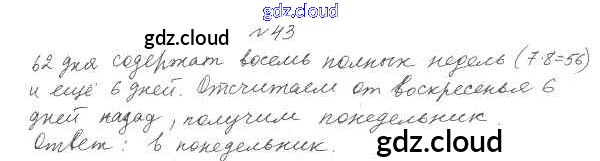 gdz.cloud
№43
gdz.cloud
62 дня содержат восемь полных недель (7·8=56)
и ещё 6 дней. Отсчитаем от воскресенья 6
дней назад, получим понедельник.
gdz.cloud
Ответ: в понедельник.
gdz.cloud